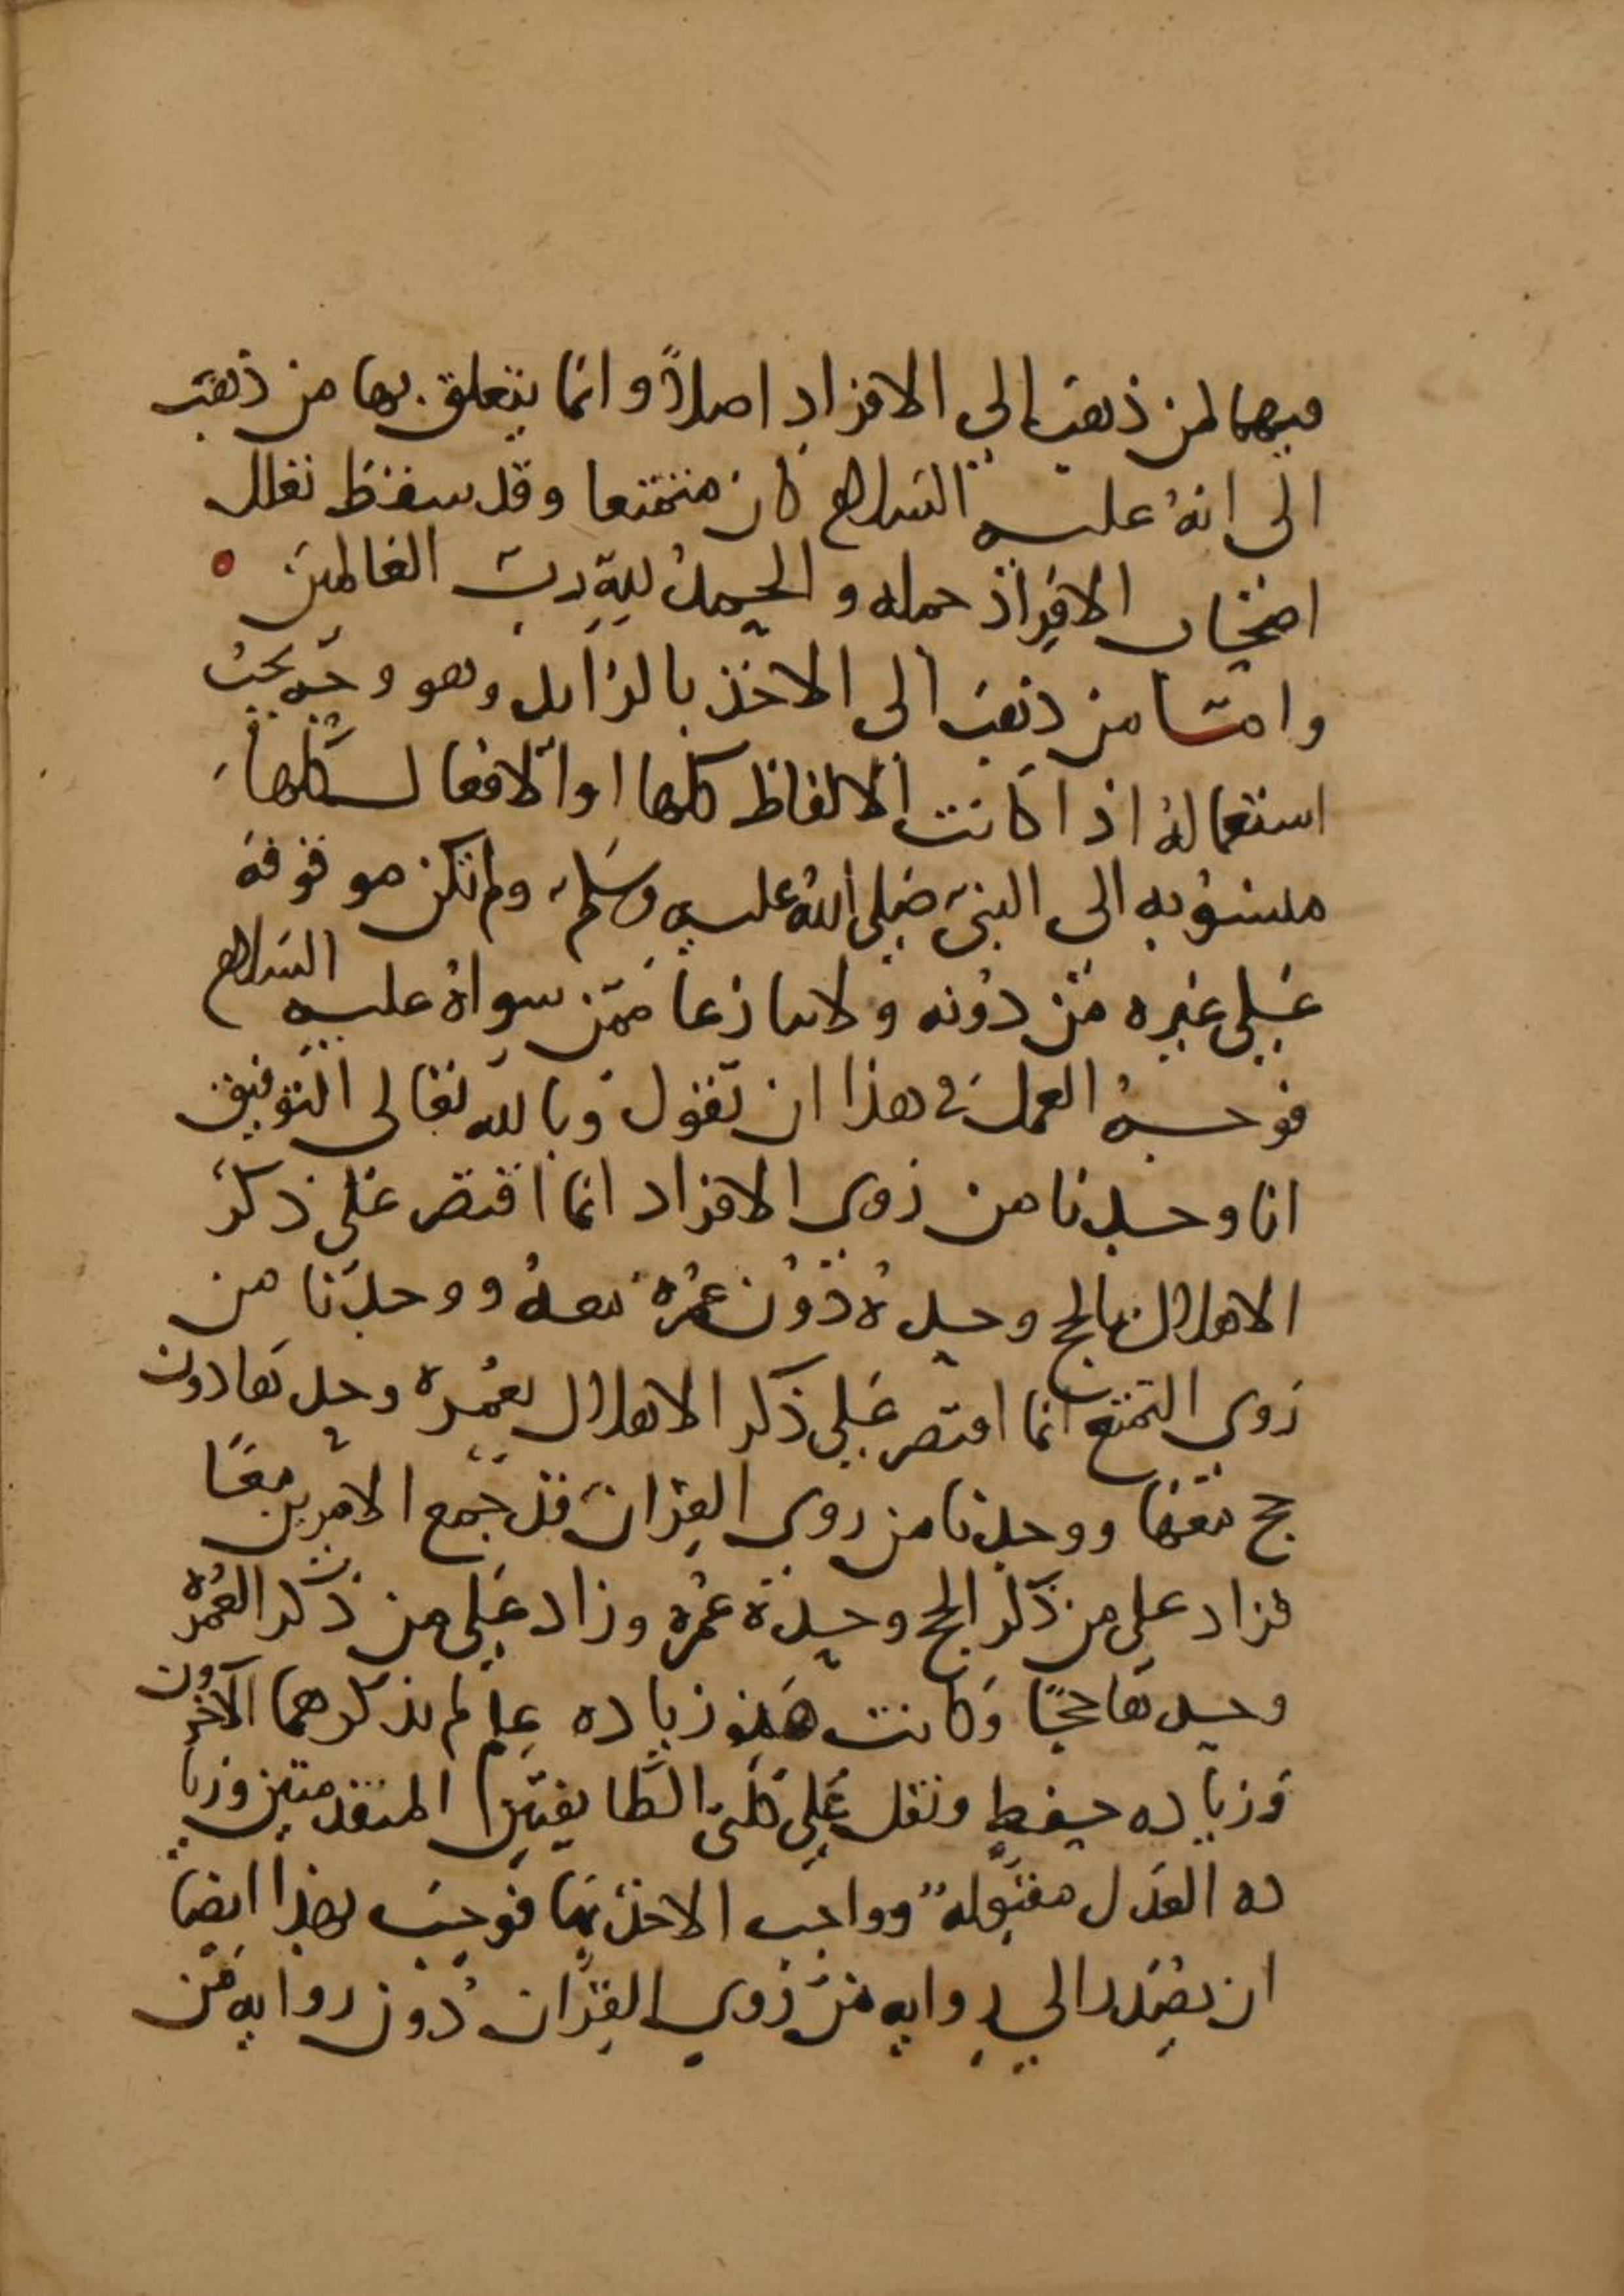 فيها لمن ذهب إلى الافراد اصلاً وانما يتعلق بها من ذهب
الى انه عليه السلام كان متمتعا وقد سقط تعلل
اصحاب الافراد جمله والحمد لله رب العالمين
واما من ذهب الى الاخذ بالزايد وهو وجه يجب
استعماله اذا كانت الالفاظ كلها او الافعال كلها
منسوبه الى النبي صلى الله عليه وسلم ولم تكن موقوفة
على غيره ممن دونه ولا تنازعا ممن سواه عليه السلام
فوجه العمل في هذا ان نقول وبالله تعالى التوفيق
انا وجدنا من روى الافراد انما اقتصر على ذكر
الاهلال بالحج وحده دون عمرة معه ووجدنا من
روى التمتع انما اقتصر على ذكر الاهلال بعمره وحدها دون
حج معها ووجدنا من روى القران قد جمع الامرين معًا
فزاد على من ذكر الحج وحده عمرة وزاد على من ذكر العمرة
وحدها حجًا وكانت هذه زياده علم لم يذكرهما الآخرون
وزياده حفظ ونقل على كلتي الطايفتين المتقدمتين وزيا
ده العدل مقبوله وواجب الاخذ بها فوجب بهذا ايضا
ان يصدر الى روايه من روى القران دون روايه من